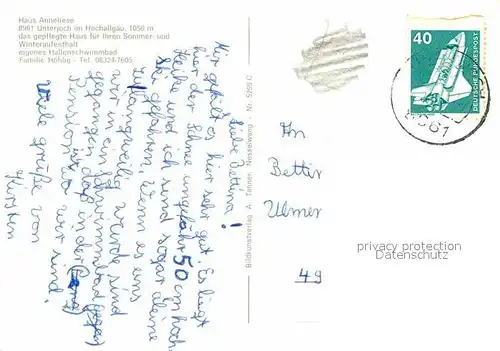 Haus Anneliese
8961 Unterjoch im Hochallgäu, 1050 m
das gepflegte Haus für Ihren Sommer- und
Winteraufenthalt
eigenes Hallenschwimmbad
Familie Höhbg - Tel. 08324-7605
Liebe Bettina!
Mir gefällt es hier sehr gut. Es liegt
hier der Schnee ungefähr 50 cm hoch.
Heike und ich sind sogar alleine
Ski gefahren. Wenn es uns
zu langweilig wurde sind
wir in ein Schwimmbad gegangen
das in der
Pension ist wo wir sind.
Viele grüße von
Kirsten
Bildkunstverlag A. Tanner, Nesselwang - Nr. 5259 C
40
DEUTSCHE BUNDESPOST
An
Bettin
Ulmer
49
privacy protection
VDMedien24.de